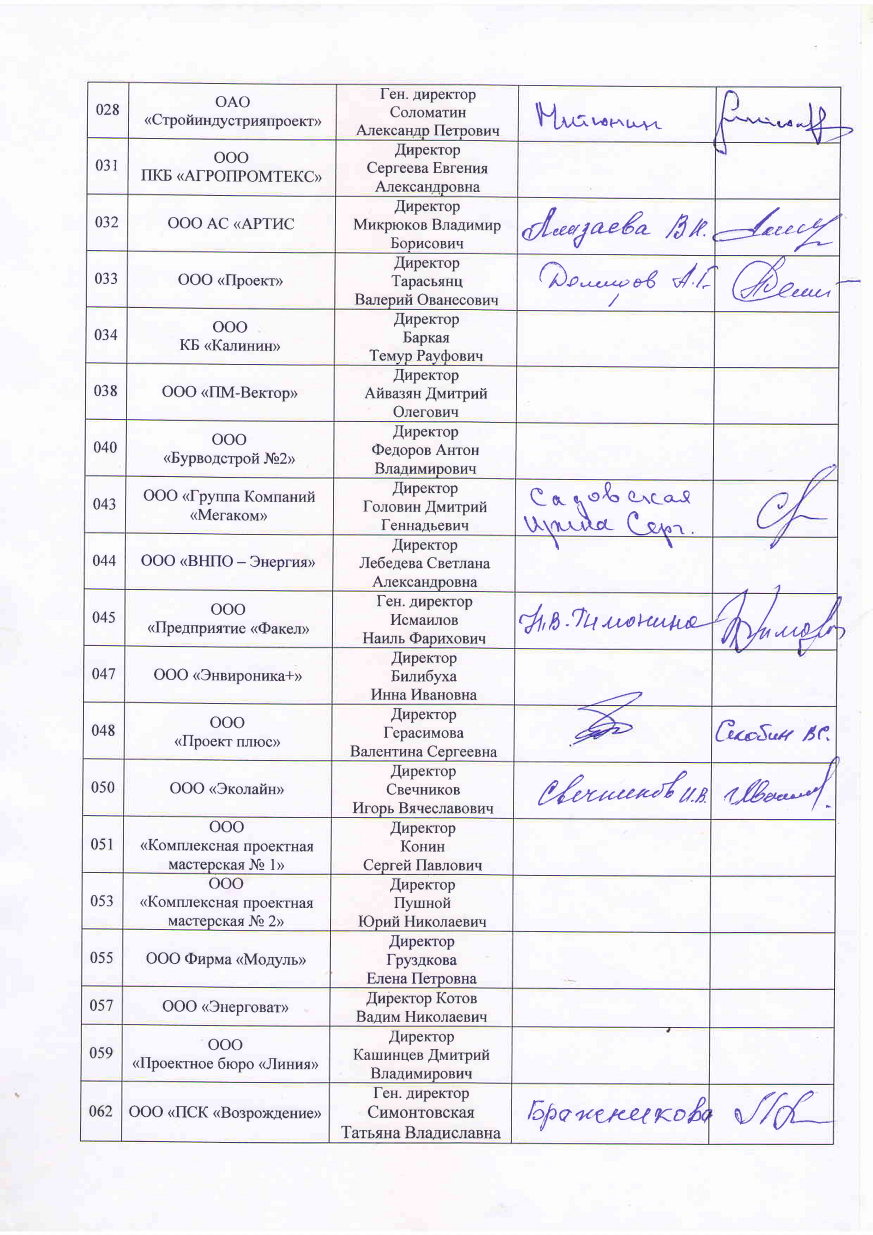 028
ОАО
«Стройиндустрияпроект»
Ген. директор
Соломатин
Александр Петрович
031
ООО
ПКБ «АГРОПРОМТЕКС»
Директор
Сергеева Евгения
Александровна
032
ООО АС «АРТИС
Директор
Микрюков Владимир
Борисович
В.И.
033
ООО «Проект»
Директор
Тарасьянц
Валерий Ованесович
А.Г.
034
ООО
КБ «Калинин»
Директор
Баркая
Темур Рауфович
038
ООО «ПМ-Вектор»
Директор
Айвазян Дмитрий
Олегович
040
ООО
«Бурводстрой №2»
Директор
Федоров Антон
Владимирович
043
ООО «Группа Компаний
«Мегаком»
Директор
Головин Дмитрий
Геннадьевич
Садовская
Ирина Серг.
044
ООО «ВНПО – Энергия»
Директор
Лебедева Светлана
Александровна
045
ООО
«Предприятие «Факел»
Ген. директор
Исмаилов
Наиль Фарихович
Н.В. Тимонина
047
ООО «Энвироника+»
Директор
Билибуха
Инна Ивановна
048
ООО
«Проект плюс»
Директор
Герасимова
Валентина Сергеевна
050
ООО «Эколайн»
Директор
Свечников
Игорь Вячеславович
Свечников И.В.
051
ООО
«Комплексная проектная
мастерская № 1»
Директор
Конин
Сергей Павлович
053
ООО
«Комплексная проектная
мастерская № 2»
Директор
Пушной
Юрий Николаевич
055
ООО Фирма «Модуль»
Директор
Груздкова
Елена Петровна
057
ООО «Энерговат»
Директор Котов
Вадим Николаевич
059
ООО
«Проектное бюро «Линия»
Директор
Кашинцев Дмитрий
Владимирович
062
ООО «ПСК «Возрождение»
Ген. директор
Симонтовская
Татьяна Владиславна
Браженикова